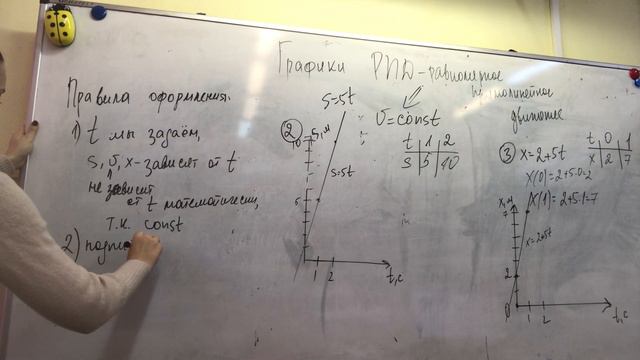 Графики РПД - равномерное
прямолинейное
движение
Правила оформления.
1) t мы задаём,
s, υ, x - зависят от t
не зависит
от t математически,
т.к. const
2) подпи
2
s=5t
υ=const
s, м
10
5
s=5t
1 2
t, c
t 1 2
s 5 10
3 x=2+5t
t 0 1
x 2 7
x(0)=2+5·0=2
x(1)=2+5·1=7
x, м
7
2
0
x=2+5t
1 2
t, c